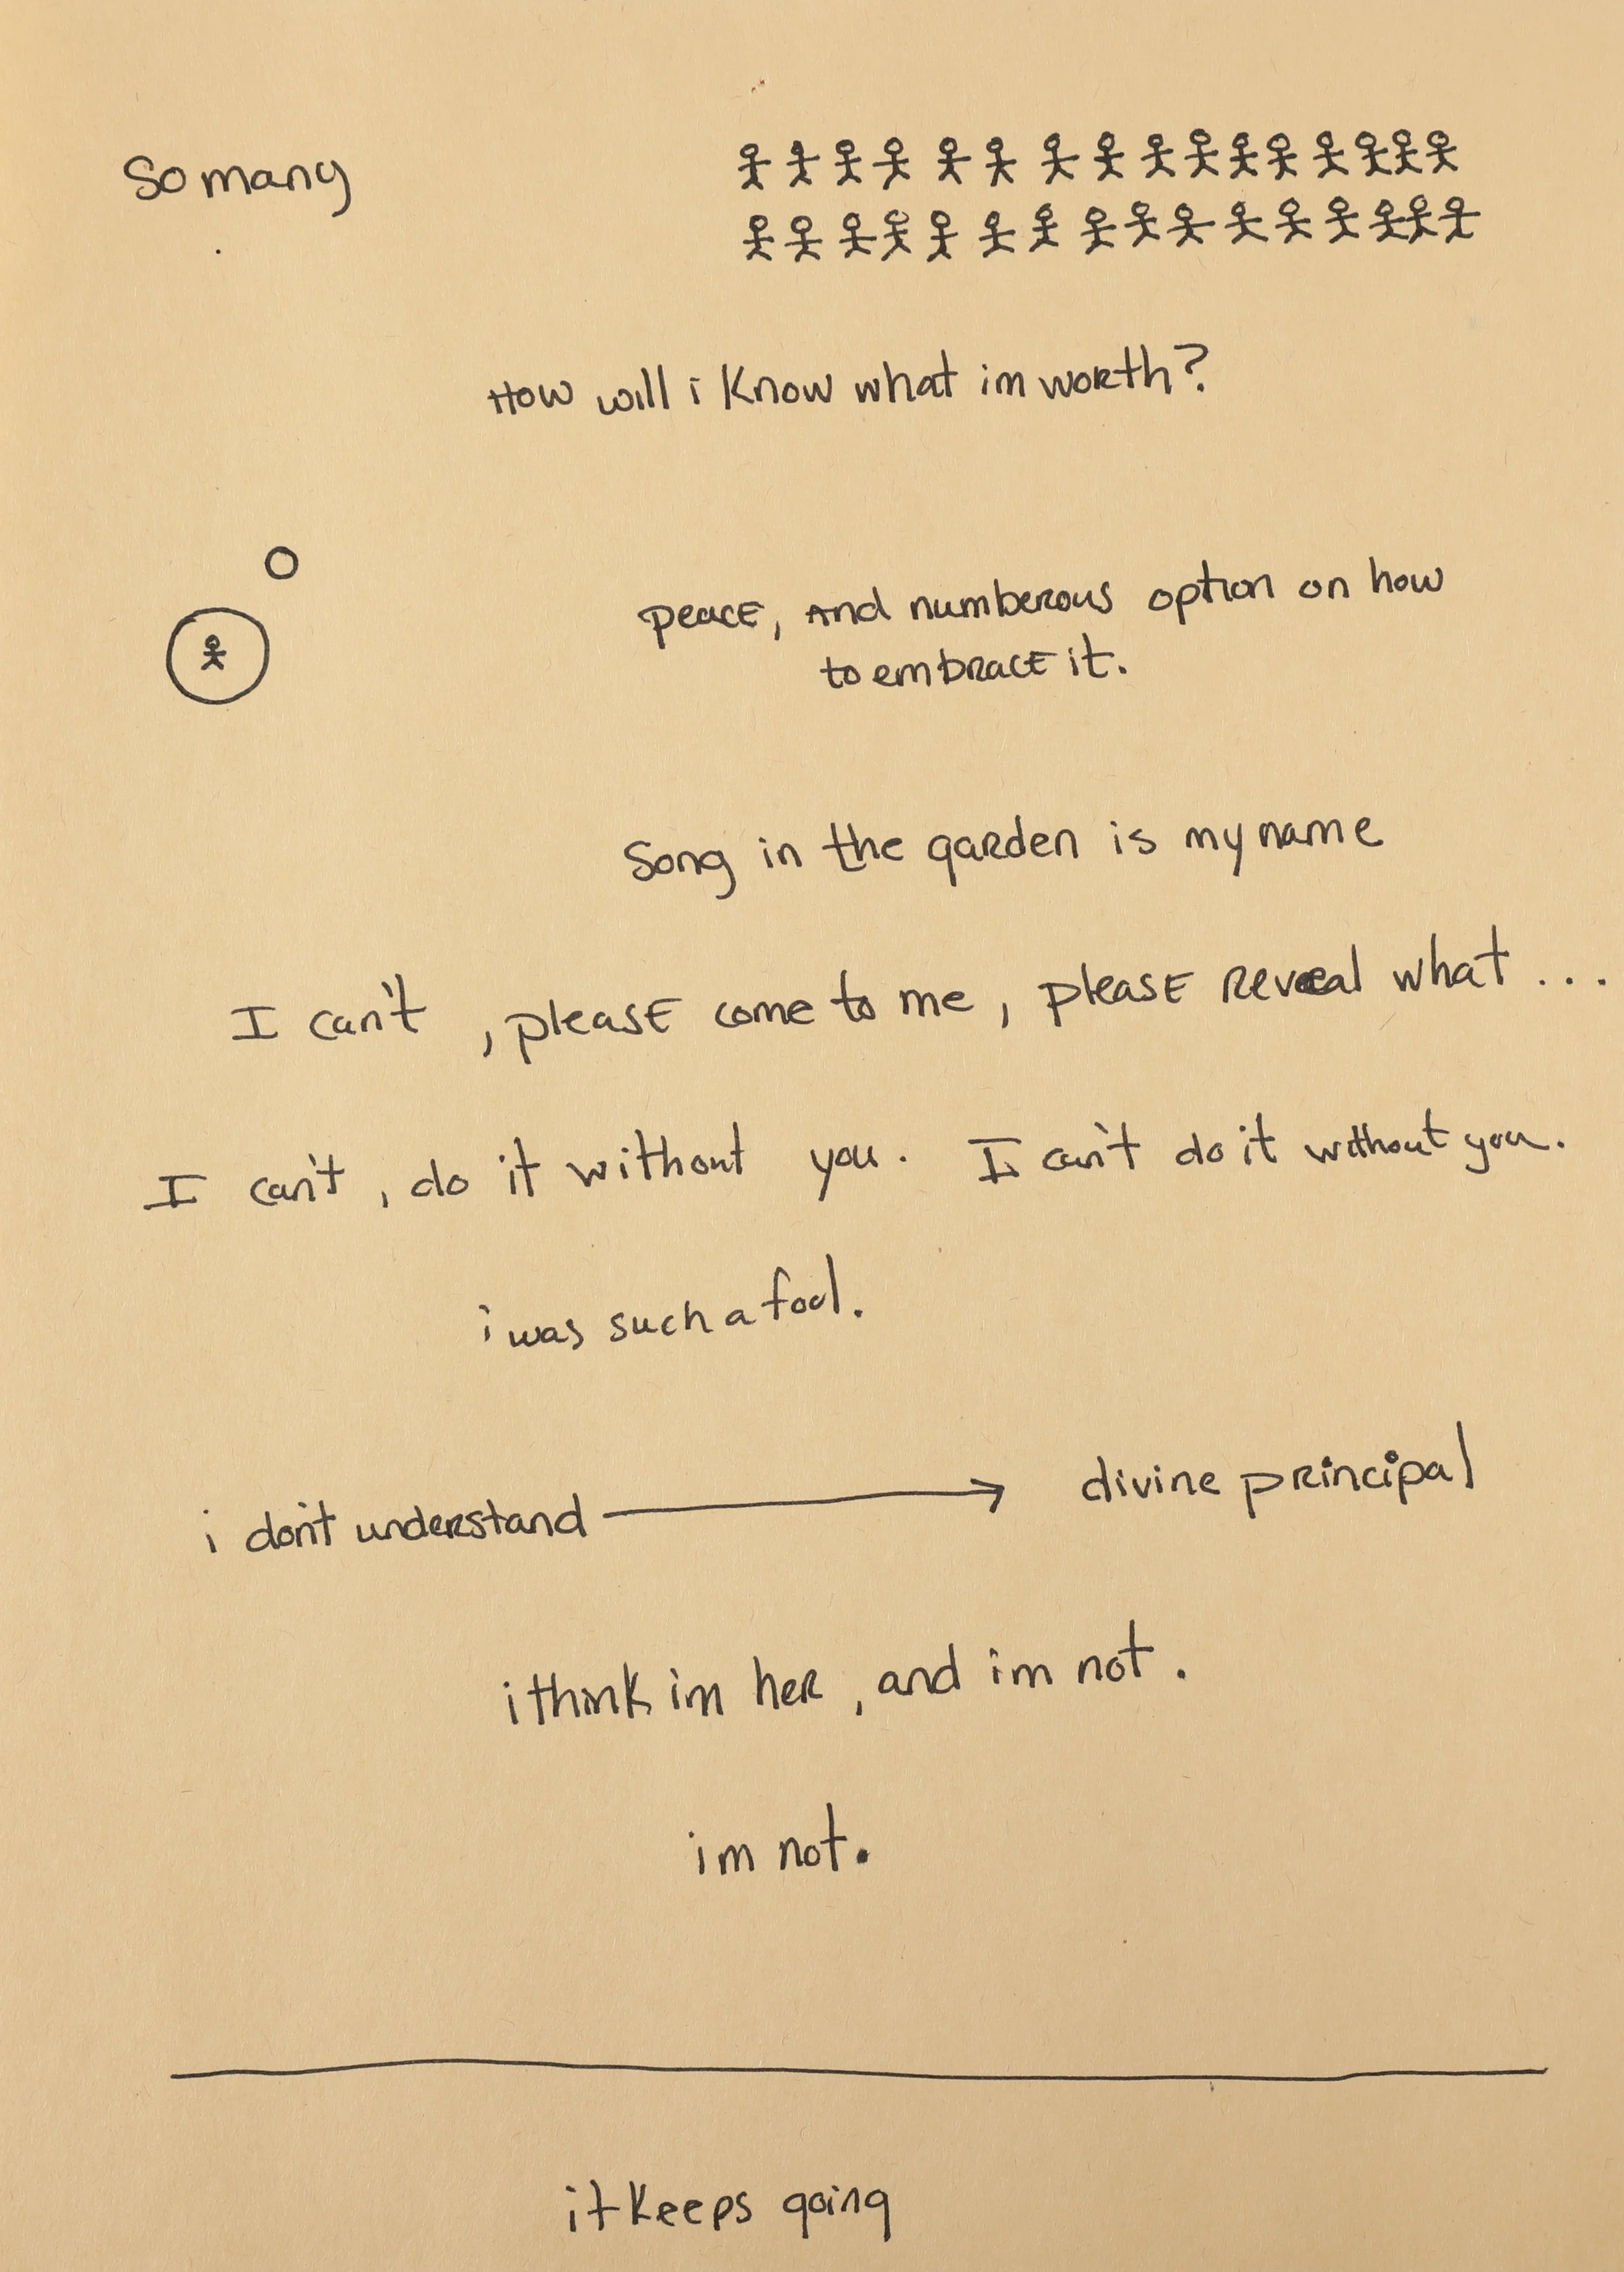 So many
How will i know what im worth?
peace, and numberous option on how
to embrace it.
Song in the garden is my name
I can't, please come to me, please reveal what ...
I can't, do it without you. I can't do it without you.
i was such a fool.
i don't understand → divine principal
i think im her, and im not.
im not.
it keeps going